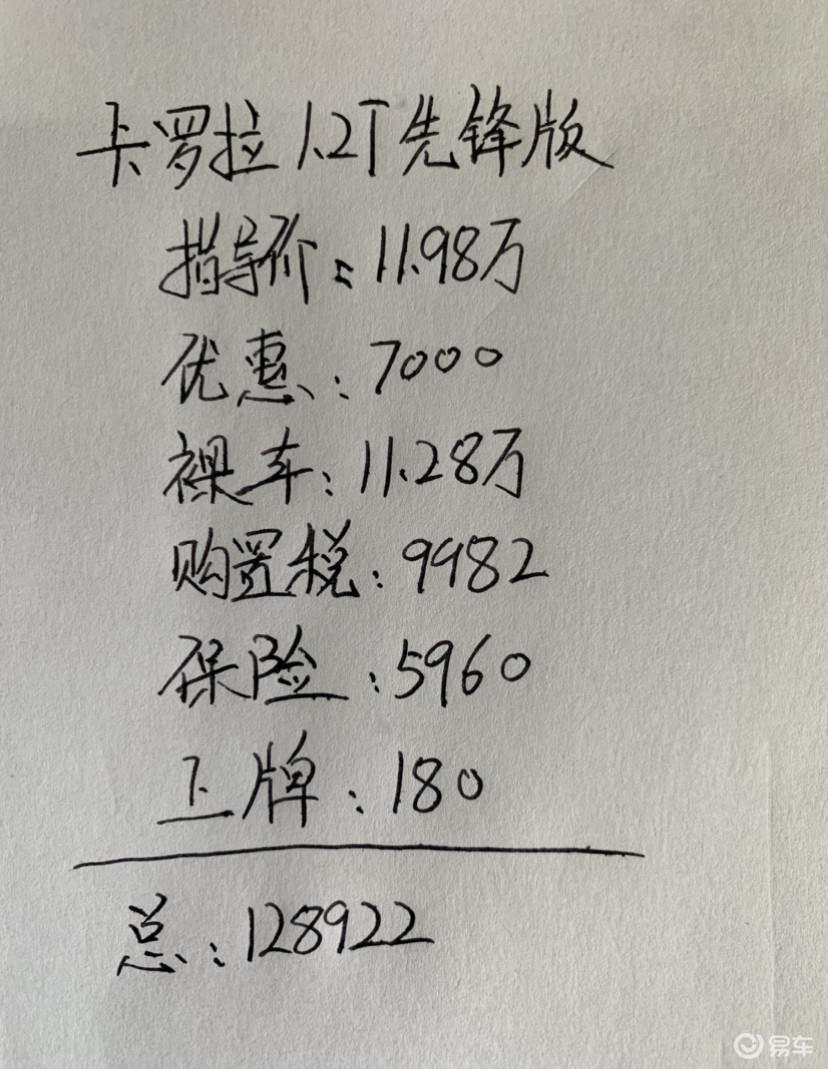 卡罗拉1.2T先锋版
指导价：11.98万
优惠：7000
裸车：11.28万
购置税：9982
保险：5960
上牌：180
总：128922
易车